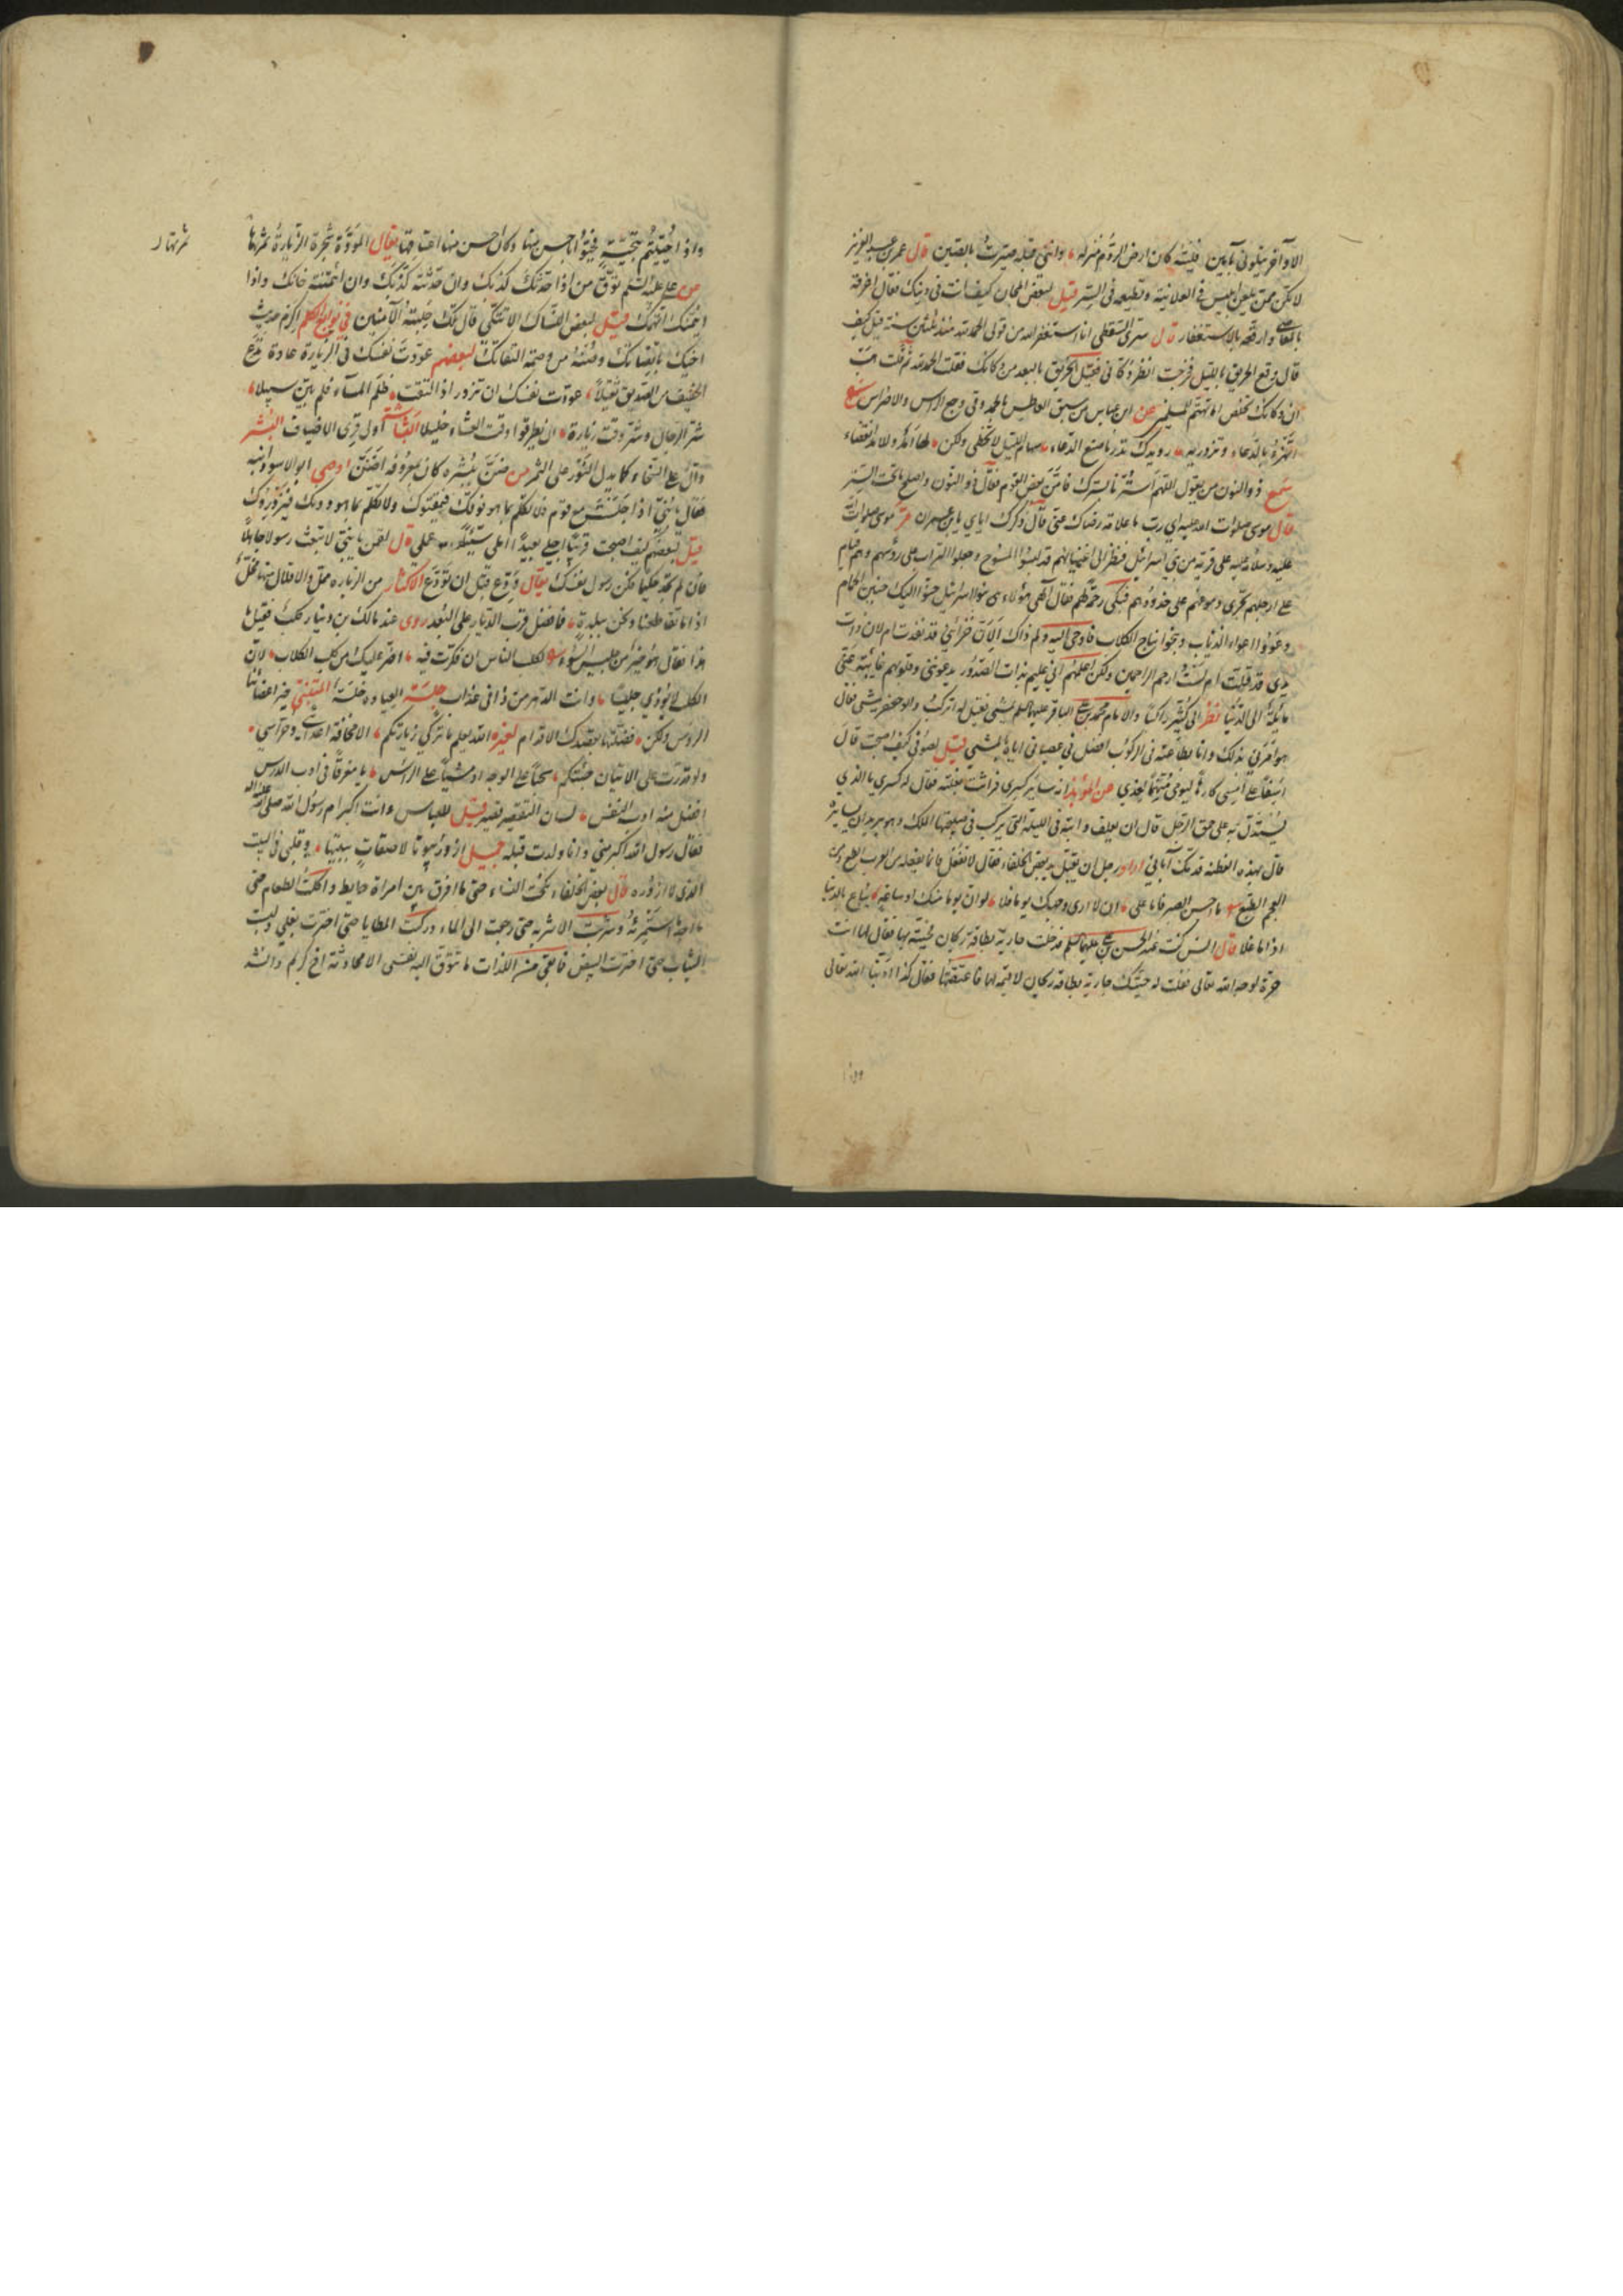 الا وآخر يتلوني بآمين فليته كان ارض الروم منزله وانني قبله صيرت بالصين قال عمر بن عبد العزيز
لا تكن ممن يلعن ابليس في العلانية وتطيعه في السر قيل لبعض المجان كيف انت في دينك فقال اخرقه
بالمعاصي وارقعه بالاستغفار قال سري السقطي انا استغفر الله من قولي الحمد لله منذ ثلثين سنة قيل كيف
قال وقع الحريق بالليل فخرجت انظر دكاني فقيل الحريق بالبعد من دكانك فقلت الحمد لله ثم قلت هب
ان دكانك تخلص اما تهتم للمسلمين عن ابن عباس من سبق العاطس بالحمد وقي وجع الراس والاضراس
اتهزء بالدعاء وتزدريه رويدك تدر ما صنع الدعاء سهام الليل لا تخطي ولكن لها امد وللامد انقضاء
سمع ذو النون من يقول اللهم استرنا بسترك فامن بعض القوم فقال ذو النون واصلح ما تحت الستر
قال موسى صلوات الله عليه اي رب ما علامة رضاك حتى قال ذكرك اياي يا ابن عمران مر موسى صلوات
عليه وسلامه عليه على قرية من بني اسرائيل فنظر الى اغنيائهم قد لبسوا المسوح وجعلوا التراب على رؤسهم وهم قيام
على ارجلهم تجري دموعهم على خدودهم فبكى رحمة لهم فقال الهي هؤلاء بنو اسرائيل حنوا اليك حنين الحمام
وعووا عواء الذياب ونبحوا نباح الكلاب فاوحى اليه ولم ذاك الان خزائني قد نفدت ام لان ذات
يدي قد قلت ام لست ارحم الراحمين ولكن اعلمهم اني عليم بذات الصدور يدعونني وقلوبهم غائبة عني
مائلة الى الدنيا نظر الى كثير راكبا والامام محمد بن علي الباقر عليهما السلم يمشي فقيل له اتركب وابو جعفر يمشي فقال
هو امرني بذلك وانا بطاعته في الركوب افضل في عصياني اياه بالمشي قيل لصوفي كيف اصبحت قال
اسفا على امسي كارها ليومي متهما لغدي عن الموبذ انه ساير كسرى فراثت بغلته فقال له كسرى ما الذي
يستدل به على حمق الرجل قال ان يعلف دابته في الليلة التي يركب في صبيحتها الملك وهو يريد ان يسايره
قال بهذه الفطنة قدمتك آبائي اراد رجل ان يقبل يد بعض الخلفاء فقال لا تفعل فانما يفعله من العرب الطمع ومن
العجم الطبع ما احسن الصبر فاما على ان لا ارى وجهك يوما فلا لو ان يوما منك او ساعة يباع بالدنيا
اذا ما غلا قال انس كنت عند الحسن بن علي عليهما السلم فدخلت جارية بطاقة ريحان فحيته بها فقال لها انت
حرة لوجه الله تعالى فقلت له حيتك جارية بطاقة ريحان لا قيمة لها فاعتقتها فقال كذا ادبنا الله تعالى
واذا
واذا حييتم بتحية فحيوا باحسن منها وكان احسن منها اعتاقها يقال المودة شجرة الزيارة ثمرتها
ثمرتها ر
عن علي عليه السلم توق من اذا حدثك كذبك وان حدثته كذبك وان ائتمنته خانك واذا
ائتمنك اتهمك قيل لبعض الفتاك الا تتكي قال تلك جلسة الآمنين في نوابغ الكلم اكرم حديث
اخيك بانصاتك وصنه من وصمة التفاتك لبعضهم عودت نفسك في الزيارة عادة تدع
الخفيف من الصديق ثقيلا عودت نفسك ان تزور اذا التقت ظلم المساء فلم يبن سبيلا
شر الرجال وشر وقت زيارة ان يطرقوا وقت العشاء خليلا البشاشة اول قرى الاضياف البشر
دال على السخاء كما يدل النور على الثمر من ضن ببشره كان بمعروفه اضن اوصى ابو الاسود ابنه
فقال يا بني اذا جلست مع قوم فلا تتكلم بما هو فوقك فيمقتوك ولا تكلم بما هو دونك فيزدروك
قيل لبعضهم كيف اصبحت قريبا اجلي بعيدا املي سيئا عملي قال لقمن يا بني لا تبعث رسولا جاهلا
فان لم تجد حكيما فكن رسول نفسك يقال ودع قبل ان تودع الاكثار من الزياره ممل والاقلال منها مخل
اذا ما تقاطعنا ونحن ببلدة فما فضل قرب الدار على البعد روى عند مالك بن دينار كلب فقيل ما
هذا فقال هو خير من جليس السوء لكلب الناس ان فكرت فيه اضر عليك من كلب الكلاب لان
الكلب لا يوذي جليسا وانت الدهر من ذا في عذاب جلسة العباده خلسة المتنبي خير اعضائنا
الرؤس ولكن فضلتها بقصدك الاقدام لغيره الله يعلم ما تركي زيارتكم الا مخافة اعدائي وحراسي
ولو قدرت على الاتيان جئتكم سحبا على الوجه او مشيا على الراس يا مغرقا في ادب الدرس
افضل منه ادب النفس لسان التقصير قصير قيل للعباس ء انت اكبر ام رسول الله صلى الله عليه واله
فقال رسول الله اكبر مني وانا ولدت قبله جميل ازور بيوتا لاصقات ببيتها وقلبي في البيت
الذي لا ازوره قال بعض الخلفاء نكحت النساء حتى ما افرق بين امراة وحايط واكلت الطعام حتى
ما اجد ما استمرئه وشربت الاشربه حتى رجعت الى الماء وركبت المطايا حتى اخترت نعلي ولبست
الثياب حتى اخترت البيض فما بقي من اللذات ما تتوق اليه نفسي الا محادثة اخ كريم وانشد